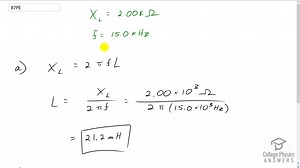 87PE
X_L = 2.00 k Ω
f = 15.0 k Hz
a) X_L = 2 π f L
L = X_L / 2 π f = 2.00 · 10³ Ω / 2 π (15.0 · 10³ Hz)
= 21.2 m H
College Physics
ANSWERS